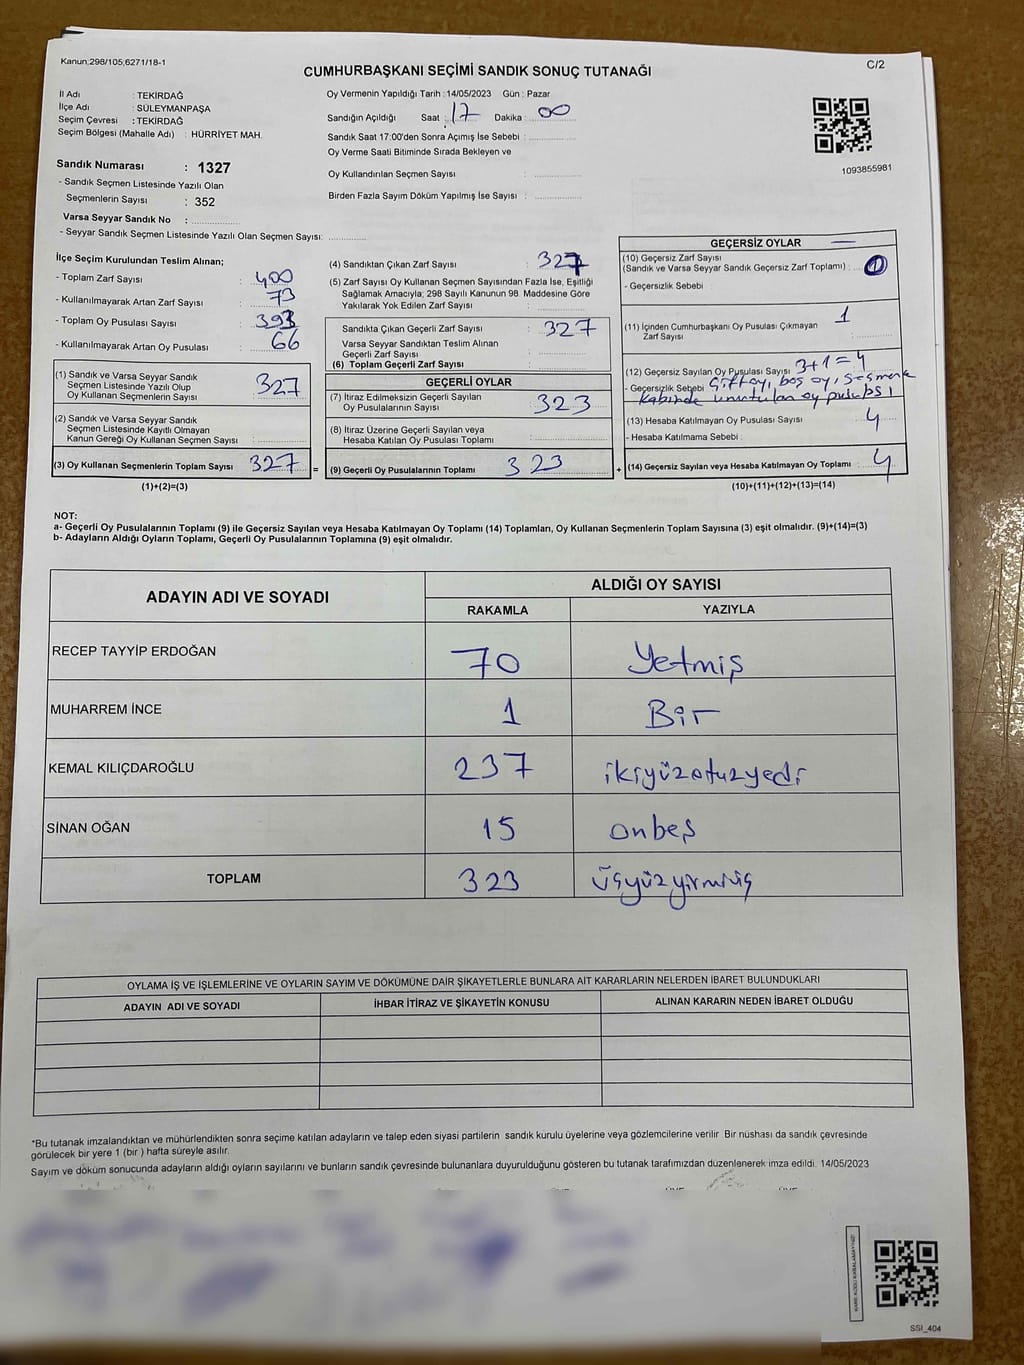 Kanun;298/105;6271/18-1
C/2
CUMHURBAŞKANI SEÇİMİ SANDIK SONUÇ TUTANAĞI
İl Adı : TEKİRDAĞ
İlçe Adı : SÜLEYMANPAŞA
Seçim Çevresi : TEKİRDAĞ
Seçim Bölgesi (Mahalle Adı) : HÜRRİYET MAH.
Sandık Numarası : 1327
- Sandık Seçmen Listesinde Yazılı Olan
Seçmenlerin Sayısı : 352
Varsa Seyyar Sandık No :
- Seyyar Sandık Seçmen Listesinde Yazılı Olan Seçmen Sayısı:
Oy Vermenin Yapıldığı Tarih : 14/05/2023 Gün : Pazar
Sandığın Açıldığı Saat : 17 Dakika : 00
Sandık Saat 17:00'den Sonra Açımış İse Sebebi :
Oy Verme Saati Bitiminde Sırada Bekleyen ve
Oy Kullandırılan Seçmen Sayısı :
Birden Fazla Sayım Döküm Yapılmış İse Sayısı :
1093855981
İlçe Seçim Kurulundan Teslim Alınan;
- Toplam Zarf Sayısı : 400
- Kullanılmayarak Artan Zarf Sayısı : 73
- Toplam Oy Pusulası Sayısı : 393
- Kullanılmayarak Artan Oy Pusulası : 66
(1) Sandık ve Varsa Seyyar Sandık
Seçmen Listesinde Yazılı Olup
Oy Kullanan Seçmenlerin Sayısı : 327
(2) Sandık ve Varsa Seyyar Sandık
Seçmen Listesinde Kayıtlı Olmayan
Kanun Gereği Oy Kullanan Seçmen Sayısı :
(3) Oy Kullanan Seçmenlerin Toplam Sayısı : 327 =
(1)+(2)=(3)
(4) Sandıktan Çıkan Zarf Sayısı : 327
(5) Zarf Sayısı Oy Kullanan Seçmen Sayısından Fazla İse, Eşitliği
Sağlamak Amacıyla; 298 Sayılı Kanunun 98. Maddesine Göre
Yakılarak Yok Edilen Zarf Sayısı :
Sandıkta Çıkan Geçerli Zarf Sayısı : 327
Varsa Seyyar Sandıktan Teslim Alınan
Geçerli Zarf Sayısı :
(6) Toplam Geçerli Zarf Sayısı :
GEÇERLİ OYLAR
(7) İtiraz Edilmeksizin Geçerli Sayılan
Oy Pusulalarının Sayısı : 323
(8) İtiraz Üzerine Geçerli Sayılan veya
Hesaba Katılan Oy Pusulası Toplamı :
(9) Geçerli Oy Pusulalarının Toplamı : 323 +
GEÇERSİZ OYLAR
(10) Geçersiz Zarf Sayısı
(Sandık ve Varsa Seyyar Sandık Geçersiz Zarf Toplamı) :
- Geçersizlik Sebebi :
(11) İçinden Cumhurbaşkanı Oy Pusulası Çıkmayan 1
Zarf Sayısı :
(12) Geçersiz Sayılan Oy Pusulası Sayısı : 3+1=4
- Geçersizlik Sebebi : Çift oy, boş oy, seçmenle
kabinde unutulan oy pulası
(13) Hesaba Katılmayan Oy Pusulası Sayısı : 4
- Hesaba Katılmama Sebebi :
(14) Geçersiz Sayılan veya Hesaba Katılmayan Oy Toplamı : 4
(10)+(11)+(12)+(13)=(14)
NOT:
a- Geçerli Oy Pusulalarının Toplamı (9) ile Geçersiz Sayılan veya Hesaba Katılmayan Oy Toplamı (14) Toplamları, Oy Kullanan Seçmenlerin Toplam Sayısına (3) eşit olmalıdır. (9)+(14)=(3)
b- Adayların Aldığı Oyların Toplamı, Geçerli Oy Pusulalarının Toplamına (9) eşit olmalıdır.
ADAYIN ADI VE SOYADI ALDIĞI OY SAYISI
RAKAMLA YAZIYLA
RECEP TAYYİP ERDOĞAN 70 Yetmiş
MUHARREM İNCE 1 Bir
KEMAL KILIÇDAROĞLU 237 ikiyüzotuzyedi
SİNAN OĞAN 15 onbeş
TOPLAM 323 üçyüzyirmiüç
OYLAMA İŞ VE İŞLEMLERİNE VE OYLARIN SAYIM VE DÖKÜMÜNE DAİR ŞİKAYETLERLE BUNLARA AİT KARARLARIN NELERDEN İBARET BULUNDUKLARI
ADAYIN ADI VE SOYADI İHBAR İTİRAZ VE ŞİKAYETİN KONUSU ALINAN KARARIN NEDEN İBARET OLDUĞU
*Bu tutanak imzalandıktan ve mühürlendikten sonra seçime katılan adayların ve talep eden siyasi partilerin sandık kurulu üyelerine veya gözlemcilerine verilir Bir nüshası da sandık çevresinde
görülecek bir yere 1 (bir ) hafta süreyle asılır.
Sayım ve döküm sonucunda adayların aldığı oyların sayılarını ve bunların sandık çevresinde bulunanlara duyurulduğunu gösteren bu tutanak tarafımızdan düzenlenerek imza edildi. 14/05/2023
SSI_404